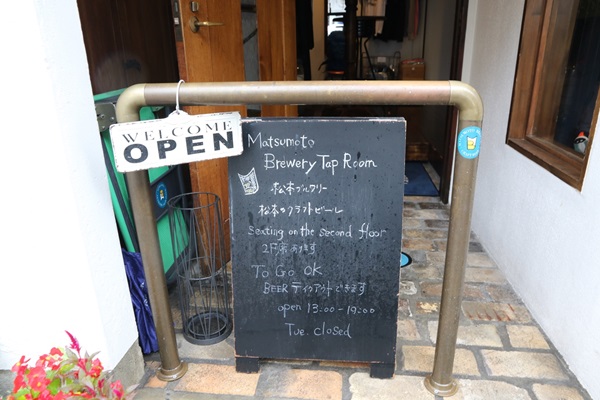 WELCOME
OPEN
Matsumoto
Brewery Tap Room
松本ブルワリー
松本のクラフトビール
Seating on the second floor
2F席あります
To Go OK
BEER テイクアウトできます
open 13:00-19:00
Tue. closed